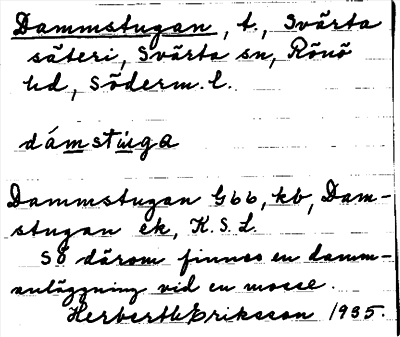 Dammstugan, t., Svärta
säteri, Svärta sn, Rönö
hd, Söderm. l.
dámstùga
Dammstugan Gbb, kb, Dam-
stugan ek, K.S.L.
SÖ därom finnes en damm-
anläggning vid en mosse.
Herbert Eriksson 1935.